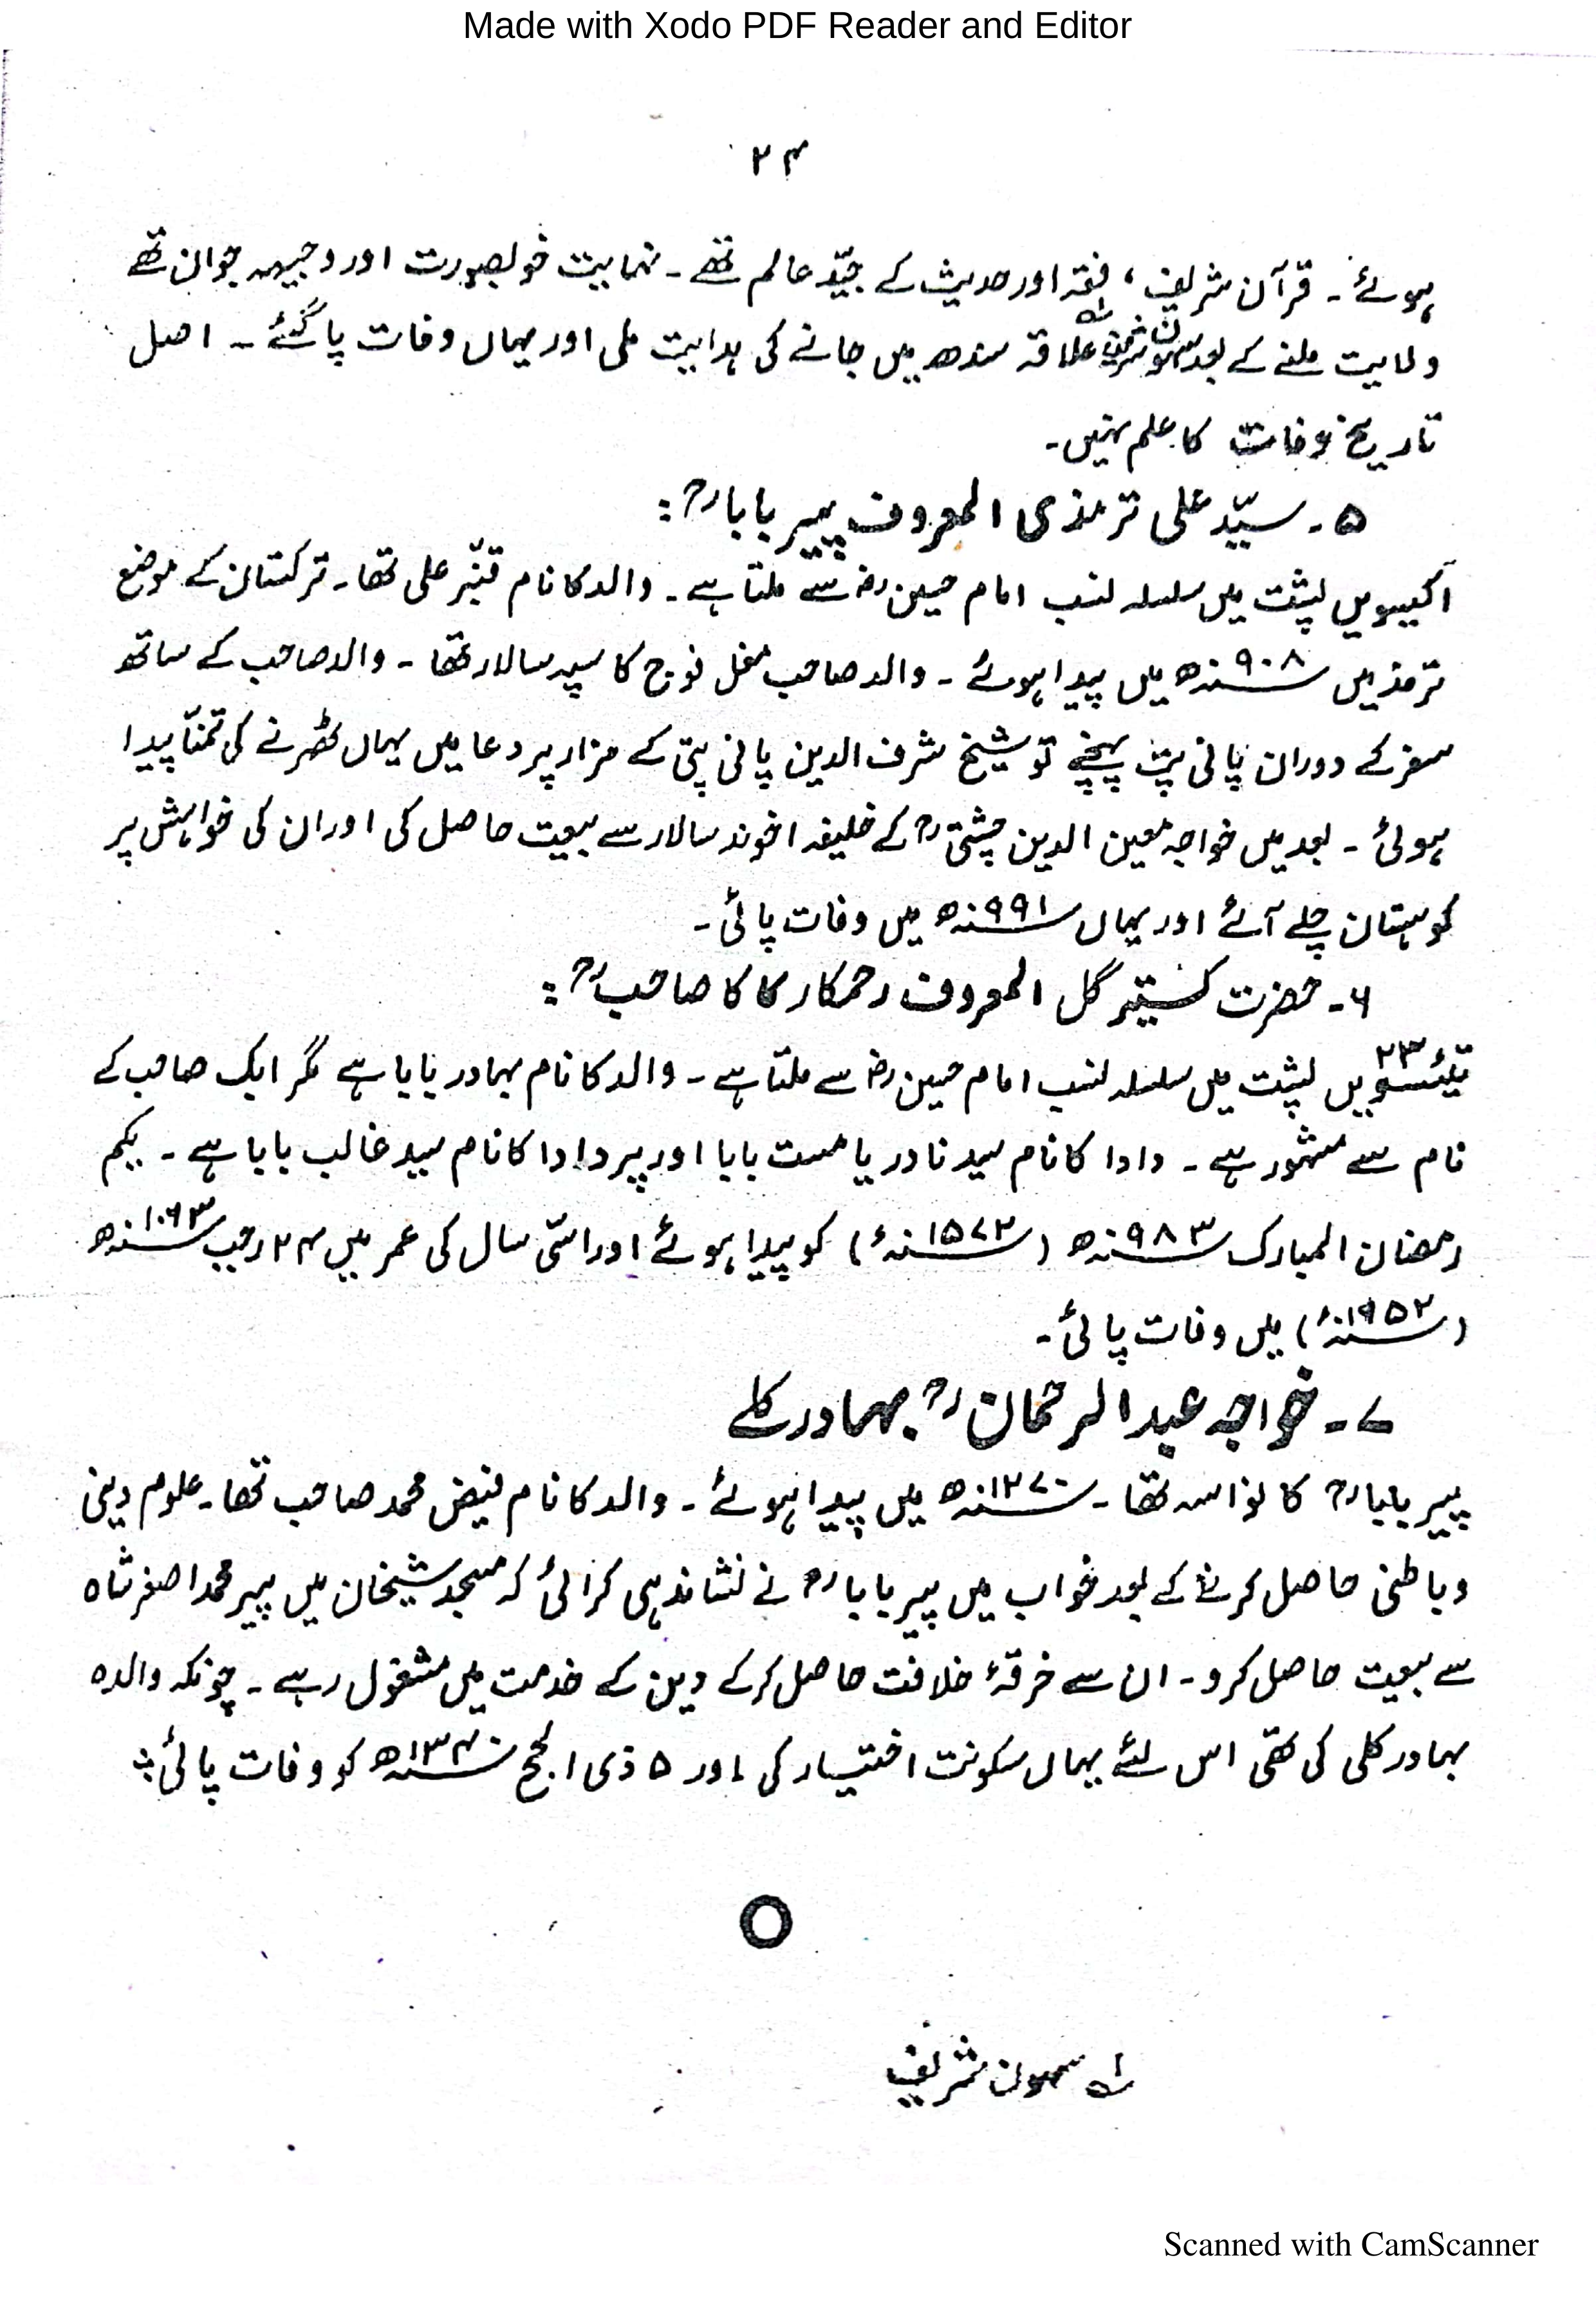 Made with Xodo PDF Reader and Editor
۲۴
ہوئے۔ قرآن شریف، فقہ اور حدیث کے جیّد عالم تھے۔ نہایت خوبصورت اور وجیہہ جوان تھے
ولایت ملنے کے بعد سہون شریف ؎۱ علاقہ سندھ میں جانے کی ہدایت ملی اور یہاں وفات پا گئے۔ اصل
تاریخ وفات کا علم نہیں۔
۵۔ سیّد علی ترمذی المعروف پیر باباؒ:
اکیسویں پشت میں سلسلہ نسب امام حسینؓ سے ملتا ہے۔ والد کا نام قنبّر علی تھا۔ ترکستان کے موضع
ترمذ میں سنہ۹۰۸ھ میں پیدا ہوئے۔ والد صاحب مغل فوج کا سپہ سالار تھا۔ والد صاحب کے ساتھ
سفر کے دوران پانی پت پہنچے تو شیخ شرف الدین پانی پتی کے مزار پر دعا میں یہاں ٹھرنے کی تمنّا پیدا
ہوئی۔ بعد میں خواجہ معین الدین چشتیؒ کے خلیفہ اخوند سالار سے بیعت حاصل کی اور ان کی خواہش پر
کوہستان چلے آئے اور یہاں سنہ۹۹۱ھ میں وفات پائی۔
۶۔ حضرت کستیر گل المعروف رحمکار کاکا صاحبؒ:
تیئسویں ۲۳ پشت میں سلسلہ نسب امام حسینؓ سے ملتا ہے۔ والد کا نام بہادر بابا ہے مگر ایک صاحب کے
نام سے مشہور ہے۔ دادا کا نام سید نادر یا مست بابا اور پردادا کا نام سید غالب بابا ہے۔ یکم
رمضان المبارک سنہ۹۸۳ھ (سنہ۱۵۷۳ء) کو پیدا ہوئے اور اسّی سال کی عمر میں ۲۴ رجب سنہ۱۰۶۳ھ
(سنہ۱۶۵۲ء) میں وفات پائی۔
۷۔ خواجہ عبد الرحمانؒ بہادر کلے
پیر باباؒ کا نواسہ تھا۔ سنہ۱۲۷۰ھ میں پیدا ہوئے۔ والد کا نام فیض محمد صاحب تھا۔ علوم دینی
و باطنی حاصل کرنے کے بعد خواب میں پیر باباؒ نے نشاندہی کرائی کہ مسجد شیخان میں پیر محمد اصغر شاہ
سے بیعت حاصل کرو۔ ان سے خرقۂ خلافت حاصل کرکے دین کے خدمت میں مشغول رہے۔ چونکہ والدہ
بہادر کلی کی تھی اس لئے یہاں سکونت اختیار کی اور ۵ ذی الحج سنہ۱۳۴۰ھ کو وفات پائی
؎۱ سہون شریف
Scanned with CamScanner